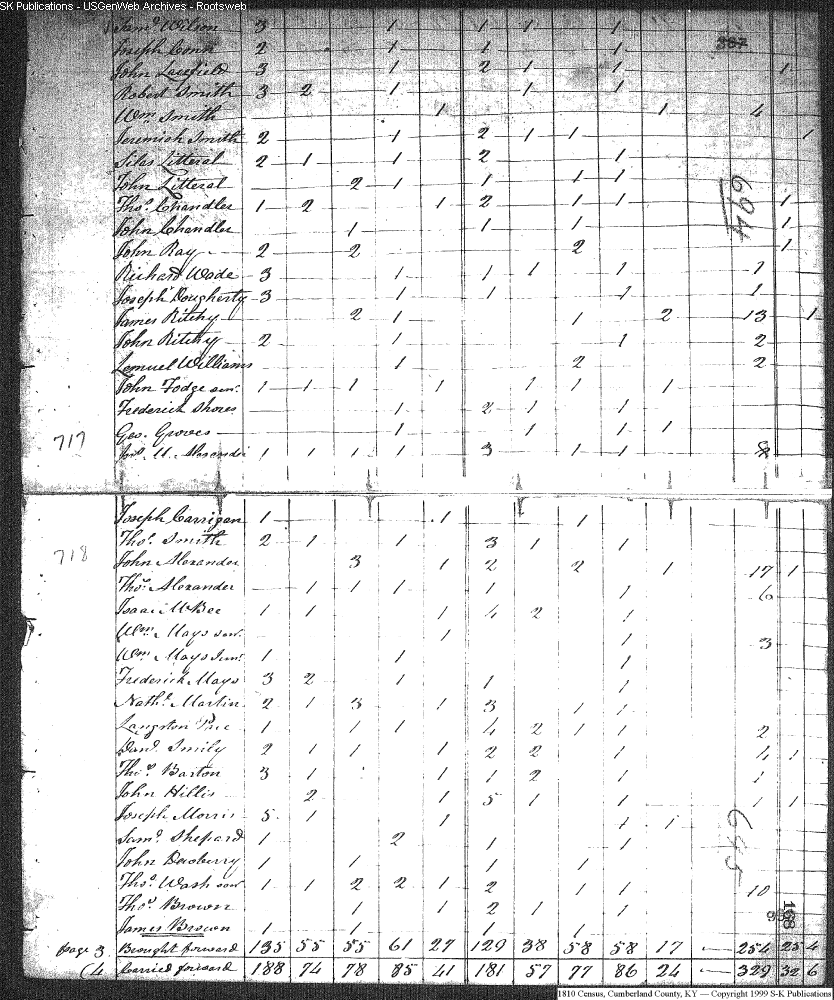 SK Publications - USGenWeb Archives - Rootsweb
Saml. Wilson 3 1 1 1 1
Joseph Conn 2 1 1 1 387
John Lacefield 3 1 2 1 1 1
Robert Smith 3 2 1 1 1
Wm Smith 1 1 4
Jeremiah Smith 2 1 2 1 1 1
Silas Litteral 2 1 1 2 1
John Litteral 2 1 1 1 1
694
Thos. Chandler 1 2 1 2 1 1 1
John Chandler 1 1 1 1
John Ray 2 2 2 1
Richard Wade 3 1 1 1 1 1
Joseph Dougherty 3 1 1 1 1
James Ritchy 2 1 1 2 13 1
John Ritchy 2 1 1 2
Lemuel Williams 1 2 2
John Fodge senr. 1 1 1 1 1 1 1
Frederick Shores 1 2 1 1
Geo. Groves 1 1 1 1
717
1 1 1 1 3 1 1
Joseph Carrigan 1 1 1
Thos. Smith 2 1 1 3 1 1
718
John Alexander 3 1 2 2 1 17 1
Thos. Alexander 1 1 1 1 1 6
Isaac McBee 1 1 1 4 2 1
Wm. Mays senr. 1 1 3
Wm. Mays Junr. 1 1 1
Frederick Mays 3 2 1 1 1
Nathl. Martin 2 1 3 1 3 1 1
Langston 1 1 1 4 2 1 1 2
Danl. Smily 2 1 1 1 2 2 1 4 1
Thos. Barton 3 1 1 1 2 1 1
John Hillis 2 1 5 1 1 1 1
Joseph Morris 5 1 1 1 1
695
Saml. Shepard 1 2 1 1
John Dewberry 1 1 1 1
Thos. Wash senr 1 1 2 2 1 2 1 1 10
Thos. Brown 1 1 2 1 1
168
James Brown 1 1 1 1
page 3 Brought forward 135 55 55 61 27 129 38 58 58 17 254 25 4
(4 Carried forward 188 74 78 85 41 181 57 77 86 24 329 32 6
1810 Census, Cumberland County, KY — Copyright 1999 S-K Publications